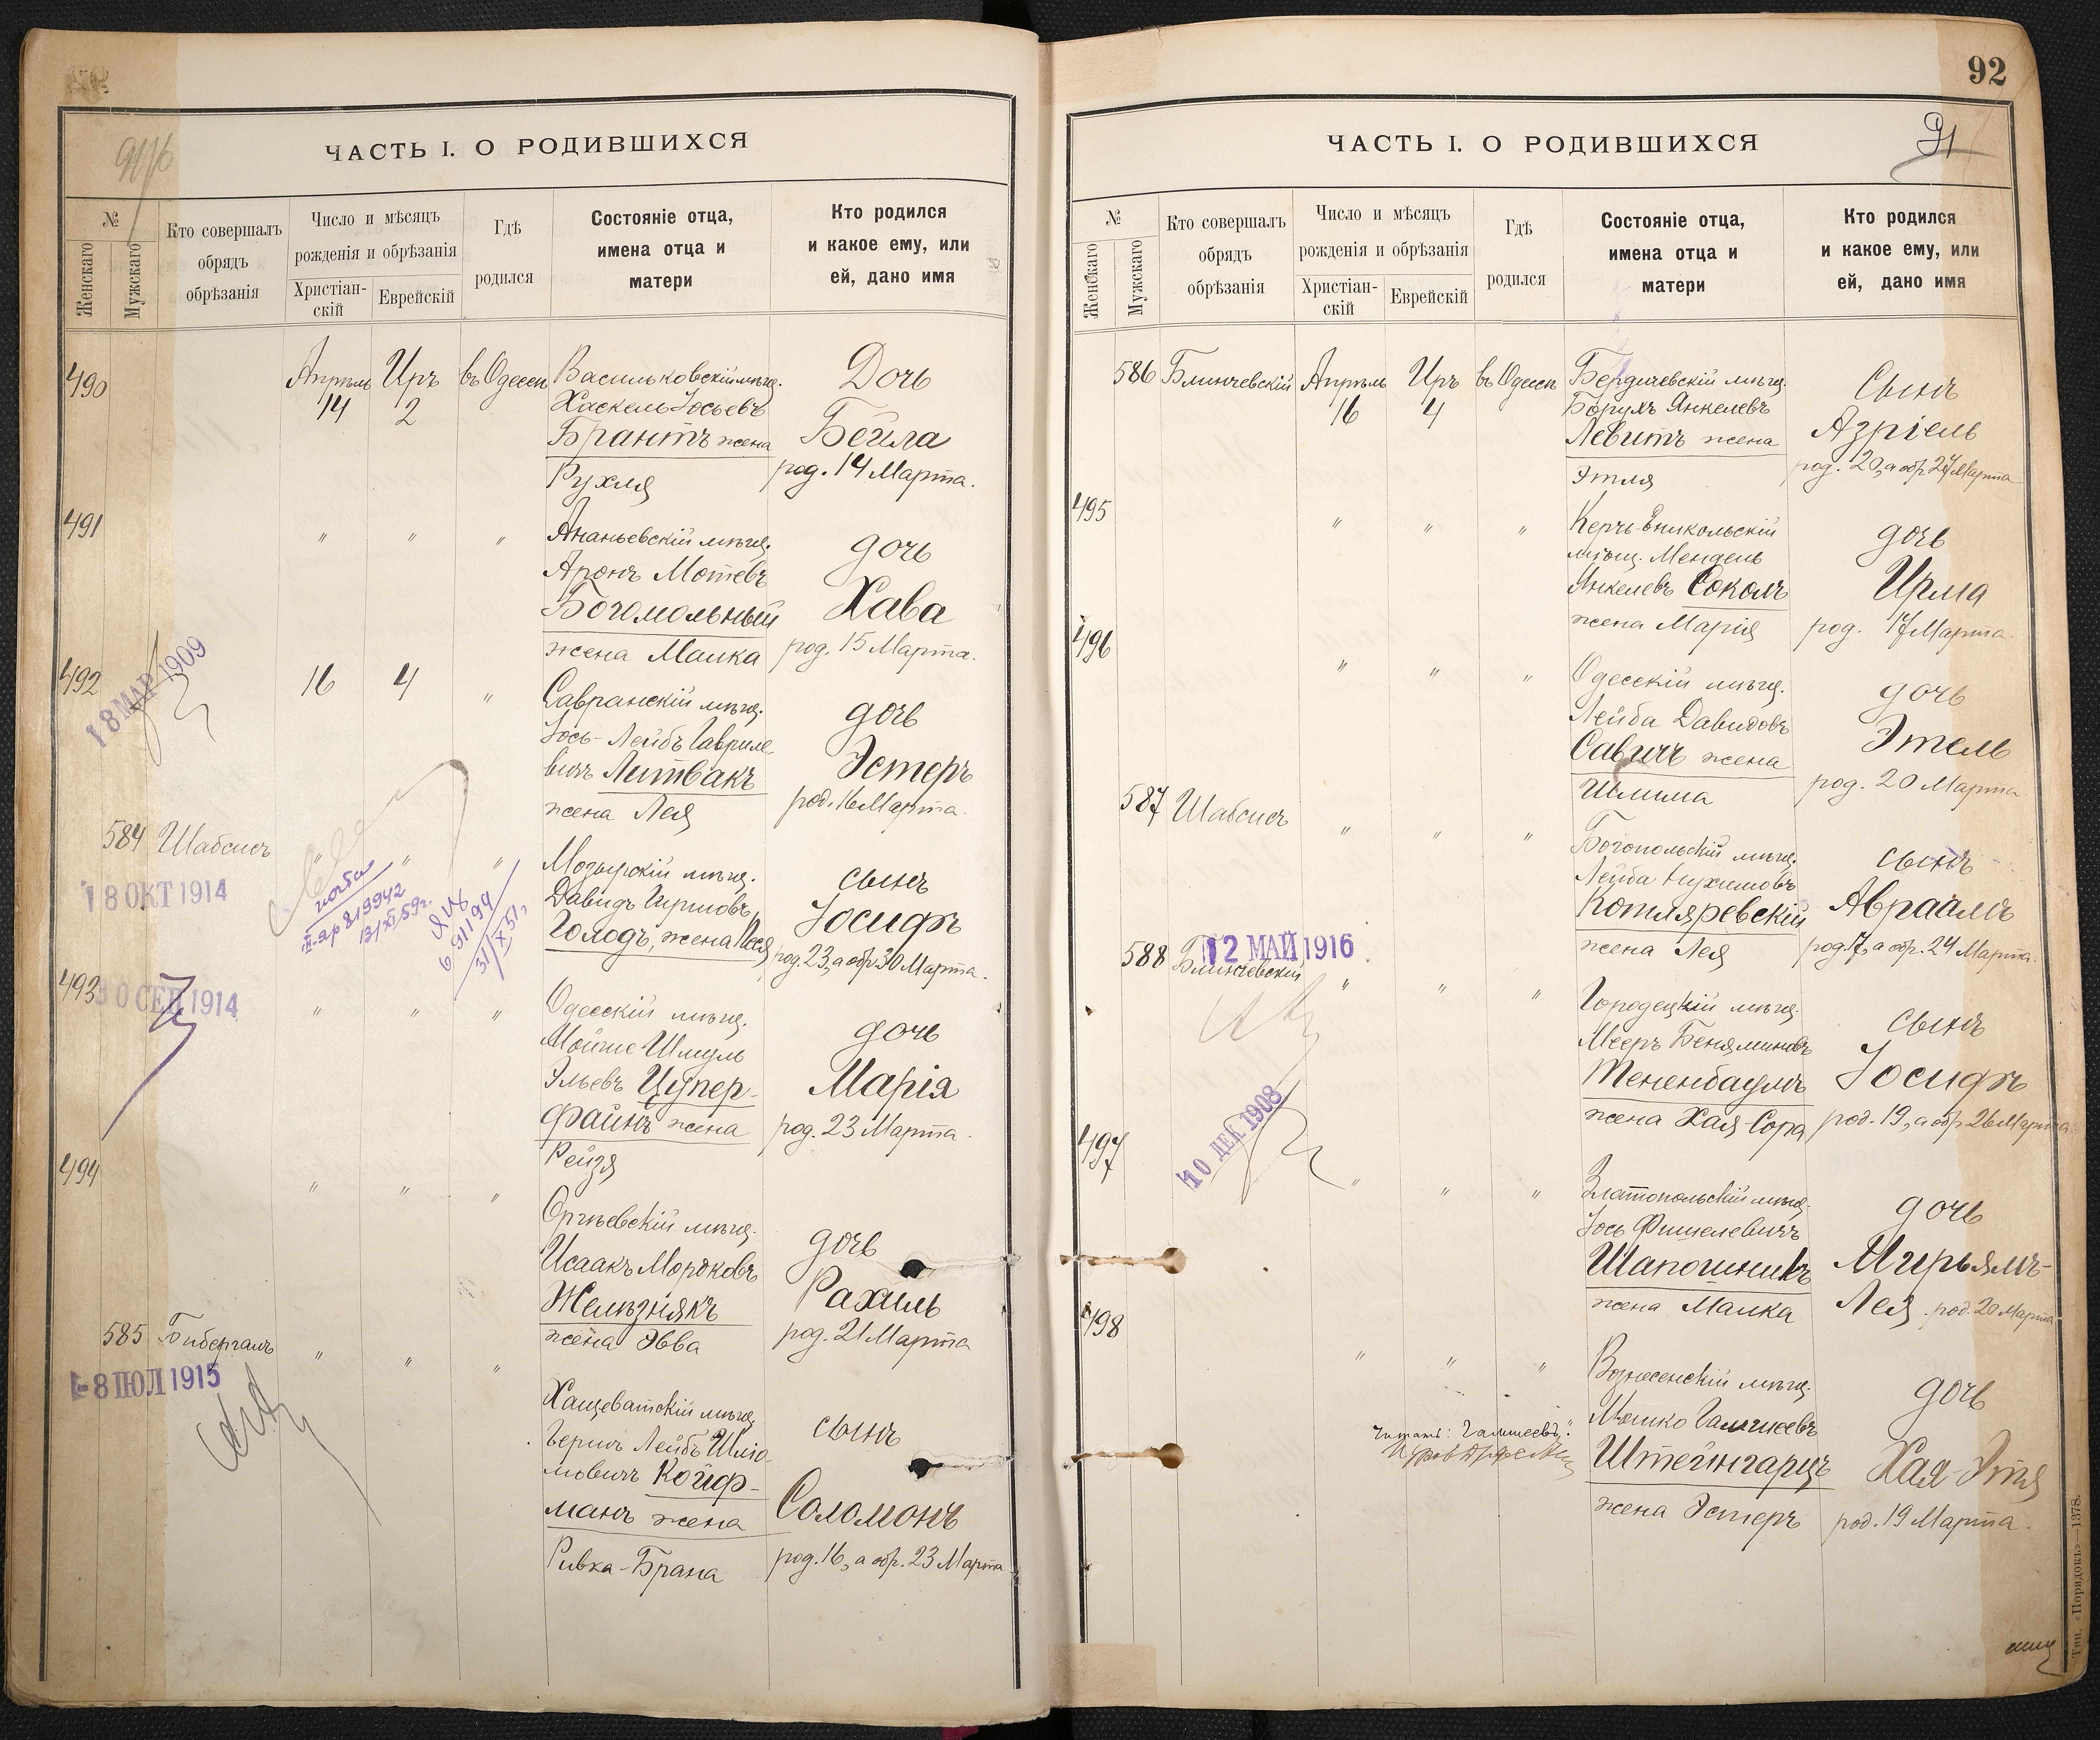 ЧАСТЬ I. О РОДИВШИХСЯ
№
Женскаго
Мужскаго
Кто совершалъ
обрядъ
обрѣзанія
Число и мѣсяцъ
рожденія и обрѣзанія
Христіан-
скій
Еврейскій
Гдѣ
родился
Состояніе отца,
имена отца и
матери
Кто родился
и какое ему, или
ей, дано имя
490
Апрѣль
14
Иръ
2
въ Одессѣ
Васильковскій мѣщ.
Хаскель Іосьевъ
Брантъ жена
Рухля
Дочь
Бейла
род. 14 Марта.
491
" " "
Ананьевскій мѣщ.
Аронъ Мотевъ
Богомольный
жена Малка
дочь
Хава
род. 15 Марта.
492
18 МАР 1909
16
4
"
Савранскій мѣщ.
Іось-Лейбъ Гавриле
вичъ Литвакъ
жена Лея
дочь
Эстеръ
род. 16 Марта.
584
Шабсисъ
18 ОКТ 1914
" " "
Мозырскій мѣщ.
Давидъ Гершовъ
Голодъ, жена Песя
сынъ
Іосифъ
род. 23, а обр. 30 Марта.
493
30 СЕН 1914
" " "
Одесскій мѣщ.
Мойше Шмуль
Эльевъ Цупер-
файнъ жена
Рейзя
дочь
Марія
род. 23 Марта.
494
" " "
Оргѣевскій мѣщ.
Исаакъ Мордковъ
Желѣзнякъ
жена Эвва
дочь
Рахиль
род. 21 Марта
585
Бибергалъ
-8 ІЮЛ 1915
" " "
Хащеватскій мѣщ.
Гершъ Лейбъ Шлё-
мовичъ Койф-
манъ жена
Ривка-Брана
сынъ
Соломонъ
род. 16, а обр. 23 Марта
92
91
ЧАСТЬ I. О РОДИВШИХСЯ
№
Женскаго
Мужскаго
Кто совершалъ
обрядъ
обрѣзанія
Число и мѣсяцъ
рожденія и обрѣзанія
Христіан-
скій
Еврейскій
Гдѣ
родился
Состояніе отца,
имена отца и
матери
Кто родился
и какое ему, или
ей, дано имя
586
Блинчевскій
Апрѣль
16
Иръ
4
въ Одессѣ
Бердичевскій мѣщ.
Борухъ Янкелевъ
Левитъ жена
Этля
Сынъ
Азріель
род. 20, а обр. 27 Марта
495
" " "
Керчь-Еникольскій
мѣщ. Мендель
Янкелевъ Соколъ
жена Марія
дочь
Ирма
род. 17 Марта.
496
" " "
Одесскій мѣщ.
Лейба Давидовъ
Савичъ жена
Шлима
дочь
Этель
род. 20 Марта.
587
Шабсисъ
" " "
Богопольскій мѣщ.
Лейба Нухимовъ
Котляревскій
жена Лея
сынъ
Авраамъ
род. 17, а обр. 24 Марта.
588
12 МАЙ 1916
Блинчевскій
" " "
Городецкій мѣщ.
Мееръ Беняминовъ
Тененбаумъ
жена Хая-Сора
сынъ
Іосифъ
род. 19, а обр. 26 Марта
497
10 ДЕК 1908
" " "
Златопольскій мѣщ.
Іось Фишелевичъ
Шапошникъ
жена Малка
дочь
Мирьямъ-
Лея род. 20 Марта
498
" " "
Вознесенскій мѣщ.
Мошко Гальшеевъ
Штейнгарцъ
жена Эстеръ
дочь
Хая-Этя
род. 19 Марта.
Читать: "Гальшеевъ".
Тип. «Порядокъ»—1378.